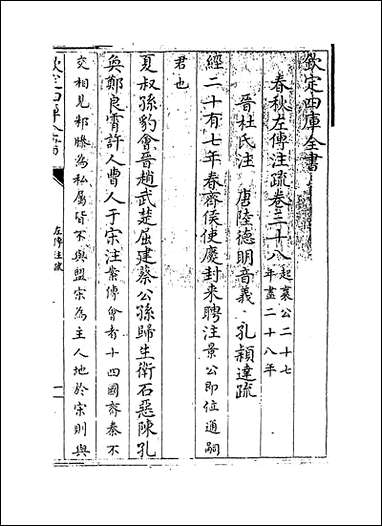 欽定四庫全書
春秋左傳注疏卷三十八 起襄公二十七
年盡二十八年
晉杜氏注 唐陸德明音義 孔穎達疏
經二十有七年春齊侯使慶封來聘注景公即位通嗣
君也
夏叔孫豹會晉趙武楚屈建蔡公孫歸生衛石惡陳孔
奐鄭良霄許人曹人于宋注案傳會者十四國齊秦不
交相見邾滕為私屬皆不與盟宋為主人地於宋則與
左傳注疏
一